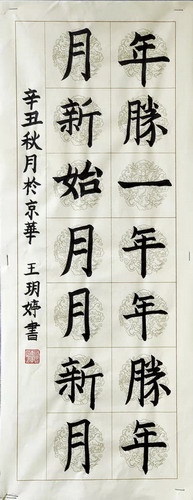 年勝一年年勝年
月新始月月新月
辛丑秋月於京華 王玥婷書